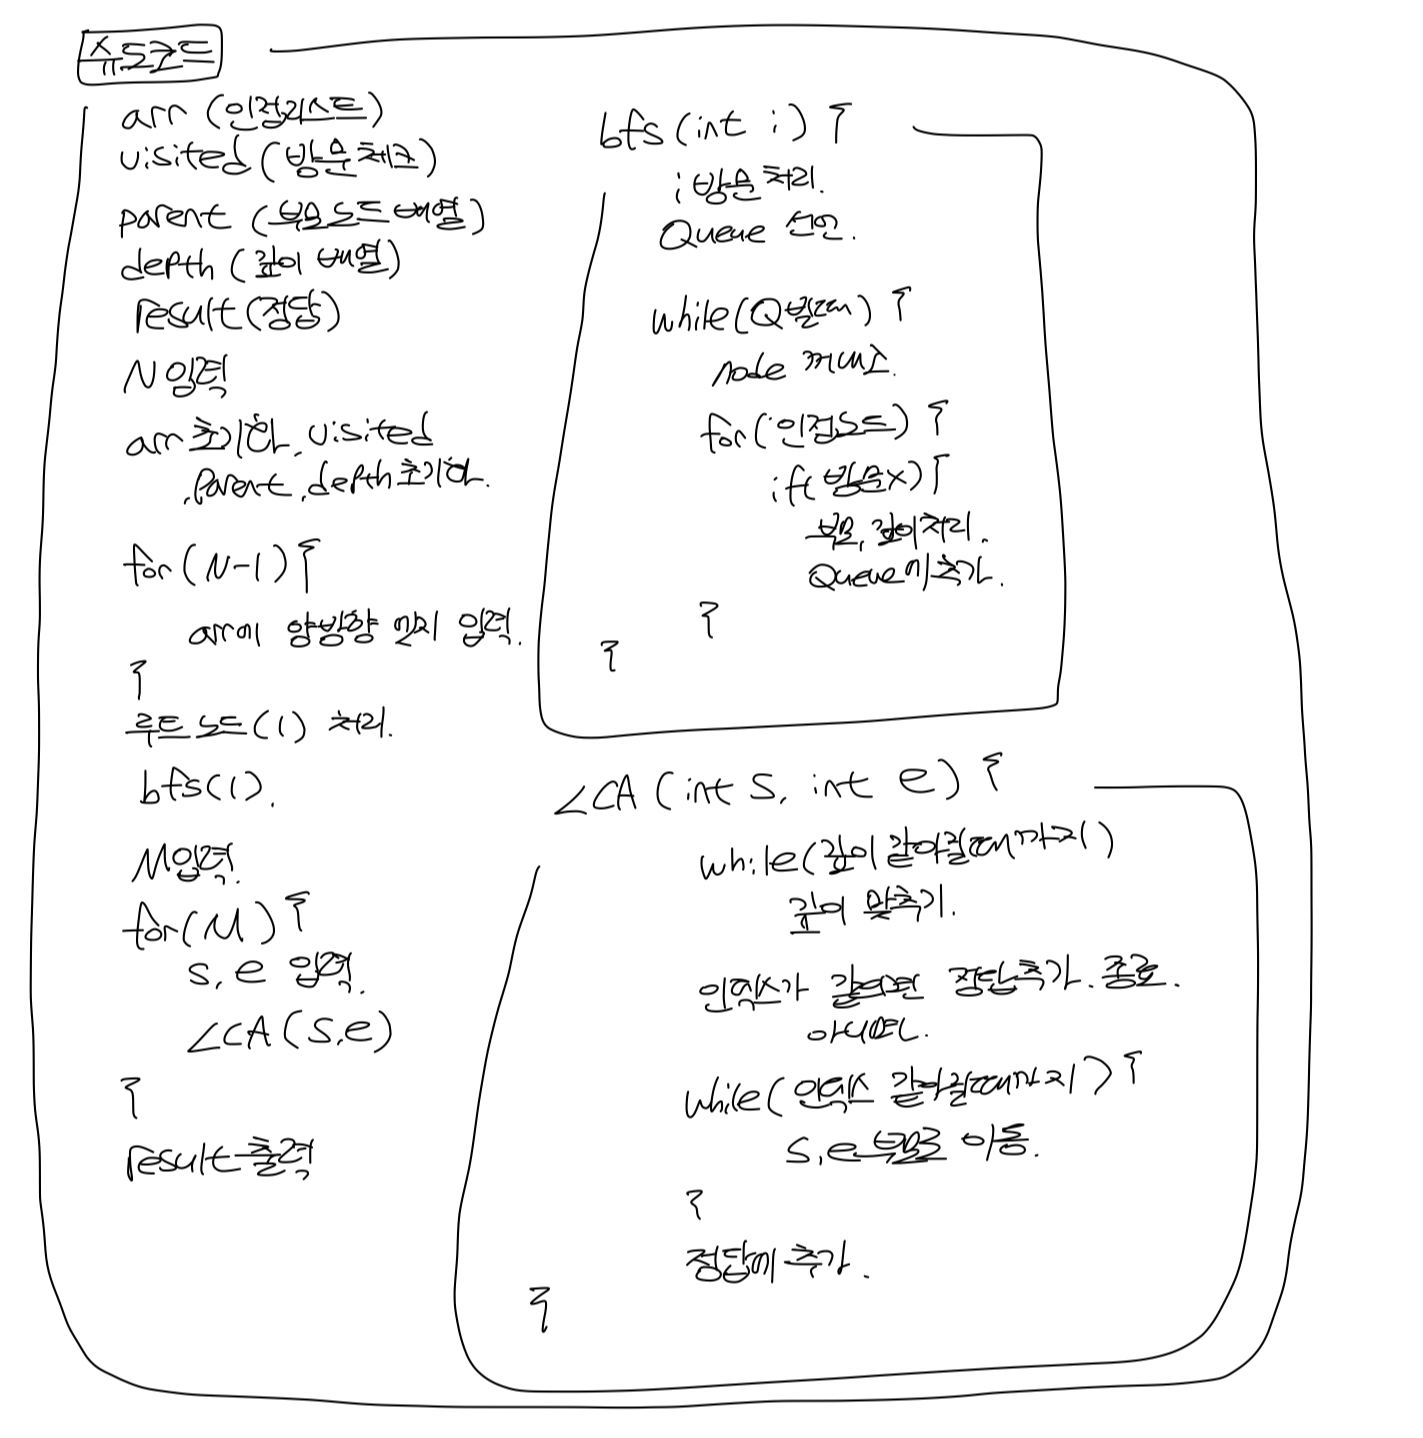 슈도코드
arr (인접리스트)
visited (방문체크)
parent (부모노드 배열)
depth (깊이 배열)
result (정답)
N 입력
arr 초기화, visited
, parent, depth 초기화.
for (N-1) {
arr에 양방향 엣지 입력.
}
루트노드(1) 처리.
bfs(1).
M입력.
for(M) {
s, e 입력.
LCA(s,e)
}
result 출력
bfs (int i) {
i 방문처리.
Queue 선언.
while(Q빌때) {
node 꺼내고.
for(인접노드) {
if(방문x) {
부모, 깊이처리.
Queue에 추가.
}
}
LCA (int s, int e) {
while(깊이 같아질때까지)
깊이 맞추기.
인덱스가 같으면 정답추가. 종료.
아니면.
while(인덱스 같아질때까지) {
s, e 부모로 이동.
}
정답에 추가.
}